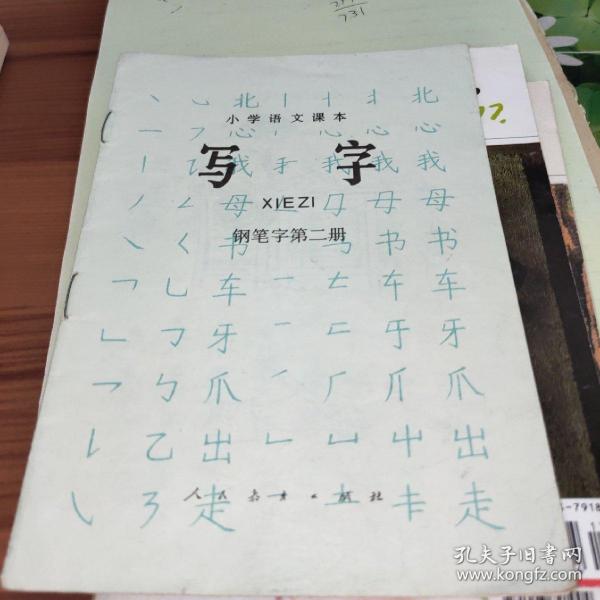 731
丶 ㇃ 北 丨 十 扌 北
小学语文课本
一 ㇇ 心 心 心 心
写字
丨 我 手 我 我 我
XIEZI
丿 ㄥ 母 𠃊 母 母
钢笔字第二册
㇏ く 书 马 书 书
乛 乚 车 一 𠂉 车 车
𠃊 ㄋ 牙 一 二 于 牙
乛 勹 爪 丿 厂 爪 爪
乙 出 𠃊 凵 中 出
㇂ 走 一 土 丰 走
人民教育出版社
孔夫子旧书网
www.kongfz.com